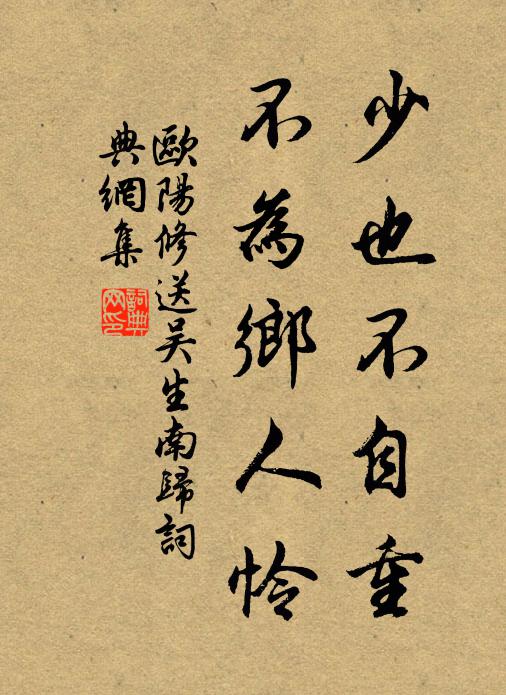 少也不自重
不為鄉人怜
歐陽修送吴生南歸詞
典網集
詞典
网印